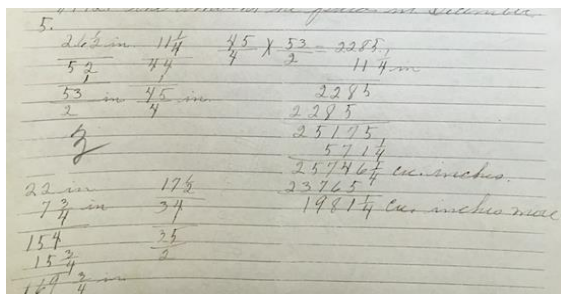 5.
26 1/2 in 11 1/4 45/4 X 53/2 = 2285
52 44 11 4 in
1 1
53/2 in 45/4 in 2285
2285
25175
571 1/4
25746 1/4 cu. inches.
22 in 17 1/2 23765
7 3/4 in 34 1981 1/4 cu. inches more
154 35/2
15 3/4
169 3/4 in